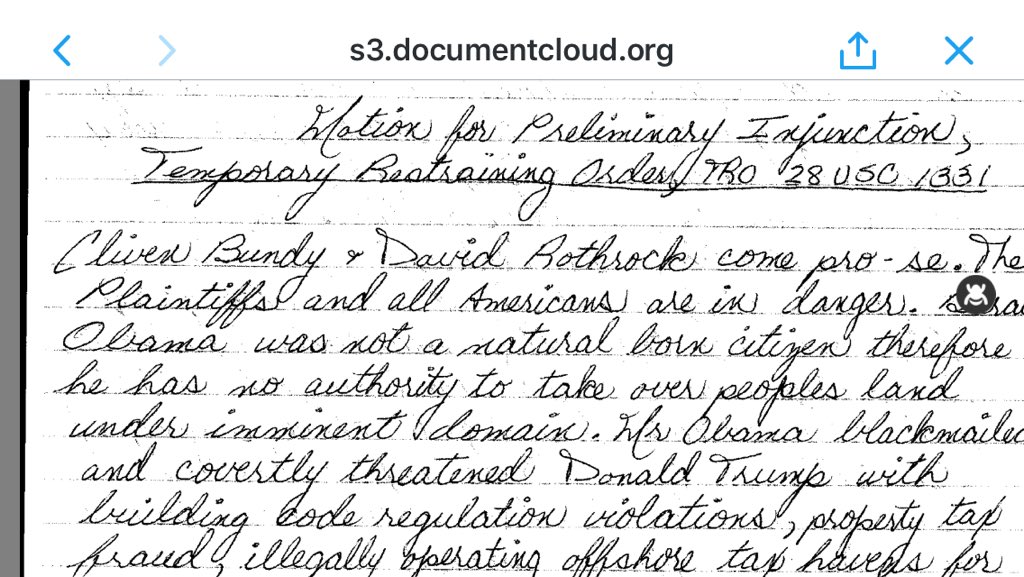 s3.documentcloud.org
Motion for Preliminary Injunction,
Temporary Restraining Order, TRO 28 USC 1331
Cliven Bundy & David Rothrock come pro-se. The
Plaintiffs and all Americans are in danger.
Obama was not a natural born citizen therefore
he has no authority to take over peoples land
under imminent domain. Mr Obama blackmailed
and covertly threatened Donald Trump with
building code regulation violations, property tax
fraud, illegally operating offshore tax havens for